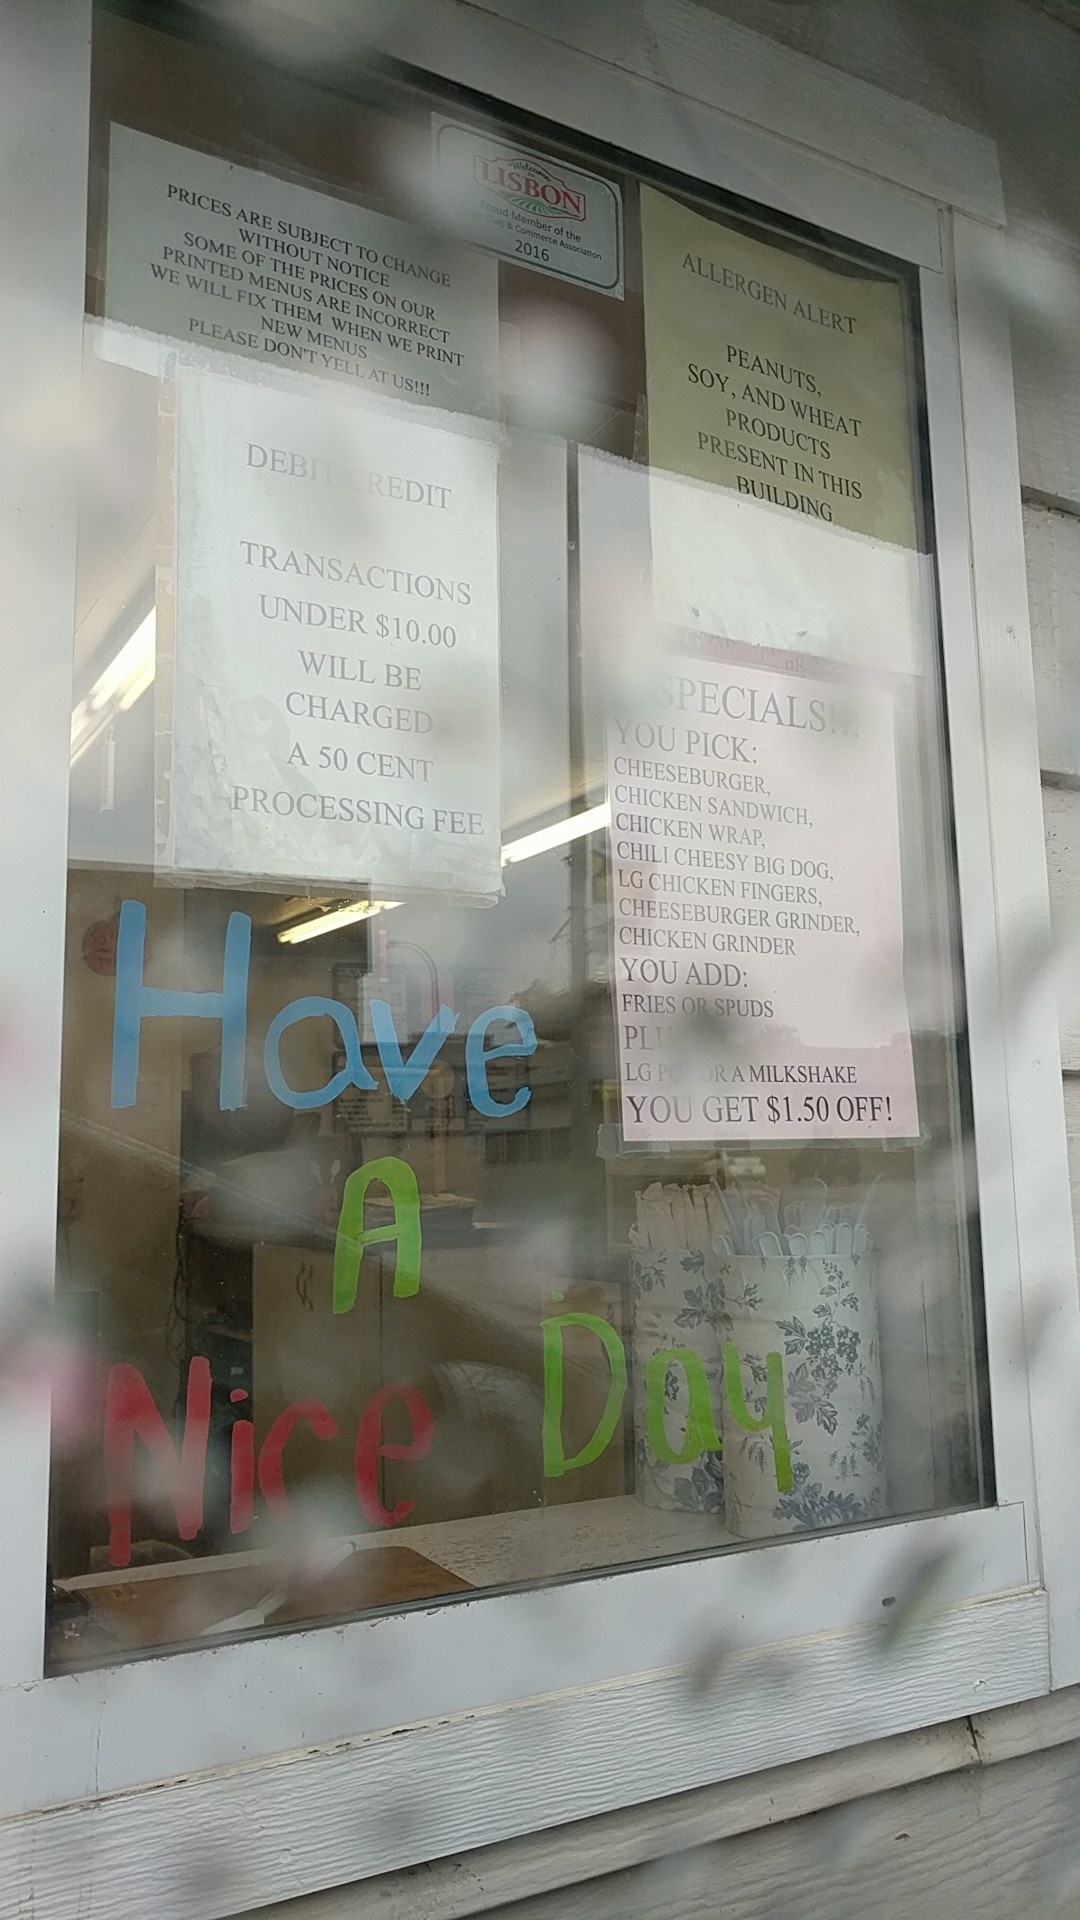 PRICES ARE SUBJECT TO CHANGE
WITHOUT NOTICE
SOME OF THE PRICES ON OUR
PRINTED MENUS ARE INCORRECT
WE WILL FIX THEM WHEN WE PRINT
NEW MENUS
PLEASE DON'T YELL AT US!!!
Welcome
to
LISBON
Proud Member of the
Civic & Commerce Association
2016
ALLERGEN ALERT
PEANUTS,
SOY, AND WHEAT
PRODUCTS
PRESENT IN THIS
BUILDING
DEBIT CREDIT
TRANSACTIONS
UNDER $10.00
WILL BE
CHARGED
A 50 CENT
PROCESSING FEE
SPECIALS!!!
YOU PICK:
CHEESEBURGER,
CHICKEN SANDWICH,
CHICKEN WRAP,
CHILI CHEESY BIG DOG,
LG CHICKEN FINGERS,
CHEESEBURGER GRINDER,
CHICKEN GRINDER
YOU ADD:
FRIES OR SPUDS
LG OR A MILKSHAKE
YOU GET $1.50 OFF!
Have
A
Nice Day